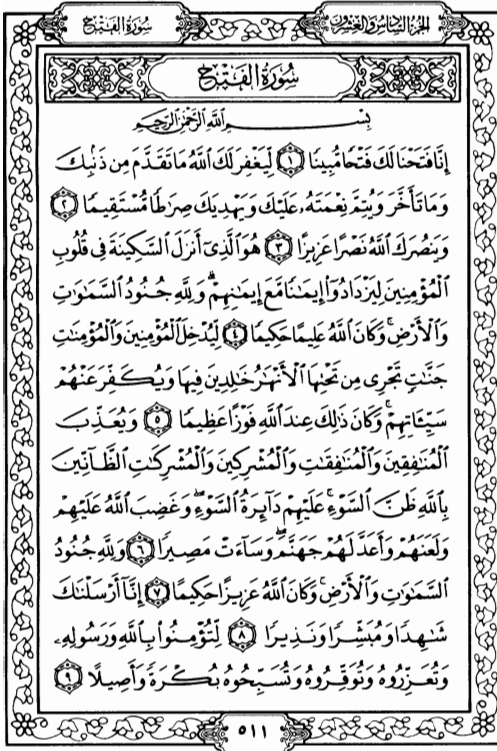 الجزء السادس والعشرون
سورة الفتح
سُورَةُ الفَتْحِ
بِسْمِ اللَّهِ الرَّحْمَٰنِ الرَّحِيمِ
إِنَّا فَتَحْنَا لَكَ فَتْحًا مُّبِينًا ١ لِّيَغْفِرَ لَكَ اللَّهُ مَا تَقَدَّمَ مِن ذَنۢبِكَ
وَمَا تَأَخَّرَ وَيُتِمَّ نِعْمَتَهُۥ عَلَيْكَ وَيَهْدِيَكَ صِرَٰطًا مُّسْتَقِيمًا ٢
وَيَنصُرَكَ اللَّهُ نَصْرًا عَزِيزًا ٣ هُوَ الَّذِىٓ أَنزَلَ السَّكِينَةَ فِى قُلُوبِ
الْمُؤْمِنِينَ لِيَزْدَادُوٓا۟ إِيمَٰنًا مَّعَ إِيمَٰنِهِمْ ۗ وَلِلَّهِ جُنُودُ السَّمَٰوَٰتِ
وَالْأَرْضِ ۚ وَكَانَ اللَّهُ عَلِيمًا حَكِيمًا ٤ لِّيُدْخِلَ الْمُؤْمِنِينَ وَالْمُؤْمِنَٰتِ
جَنَّٰتٍ تَجْرِى مِن تَحْتِهَا الْأَنْهَٰرُ خَٰلِدِينَ فِيهَا وَيُكَفِّرَ عَنْهُمْ
سَيِّـَٔاتِهِمْ ۚ وَكَانَ ذَٰلِكَ عِندَ اللَّهِ فَوْزًا عَظِيمًا ٥ وَيُعَذِّبَ
الْمُنَٰفِقِينَ وَالْمُنَٰفِقَٰتِ وَالْمُشْرِكِينَ وَالْمُشْرِكَٰتِ الظَّآنِّينَ
بِاللَّهِ ظَنَّ السَّوْءِ ۚ عَلَيْهِمْ دَآئِرَةُ السَّوْءِ ۖ وَغَضِبَ اللَّهُ عَلَيْهِمْ
وَلَعَنَهُمْ وَأَعَدَّ لَهُمْ جَهَنَّمَ ۖ وَسَآءَتْ مَصِيرًا ٦ وَلِلَّهِ جُنُودُ
السَّمَٰوَٰتِ وَالْأَرْضِ ۚ وَكَانَ اللَّهُ عَزِيزًا حَكِيمًا ٧ إِنَّآ أَرْسَلْنَٰكَ
شَٰهِدًا وَمُبَشِّرًا وَنَذِيرًا ٨ لِّتُؤْمِنُوا۟ بِاللَّهِ وَرَسُولِهِۦ
وَتُعَزِّرُوهُ وَتُوَقِّرُوهُ وَتُسَبِّحُوهُ بُكْرَةً وَأَصِيلًا ٩
٥١١